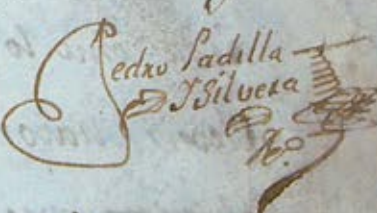 Pedro Padilla
Y Silvera